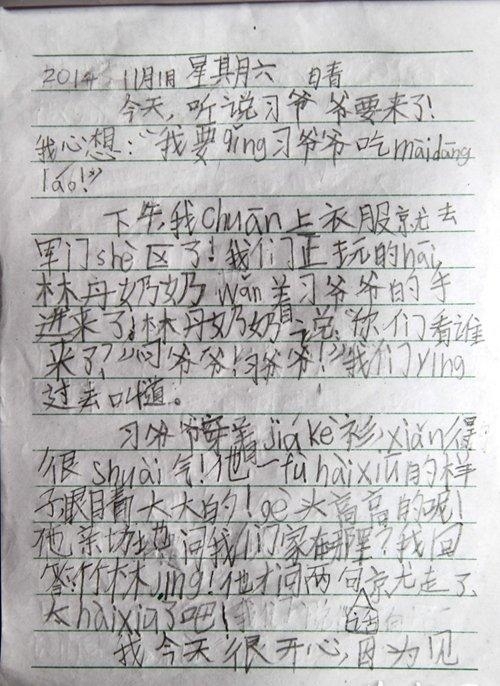 2014 11月1日 星其月六 日青
今天,听说习爷爷要来了!
我心想:“我要qǐng习爷爷吃màidāng
láo!”
下午,我chuān上衣服就去
军门shè区了!我们正玩的hāi,
林丹奶奶wǎn羊习爷爷的手
进来了,林丹奶奶说:“你们看谁
来了?”“习爷爷!习爷爷!”我们yíng
过去叫道。
习爷爷穿着jiákè衫,xiǎn得
很shuài气!他一fù hàixiū的样
子眼睛大大的!gè头高高的呢!
他亲切地问我们家在哪里?我回
答:竹林jìng!他才问两句就走了
太hàixiū了吧!
我今天很开心,因为见